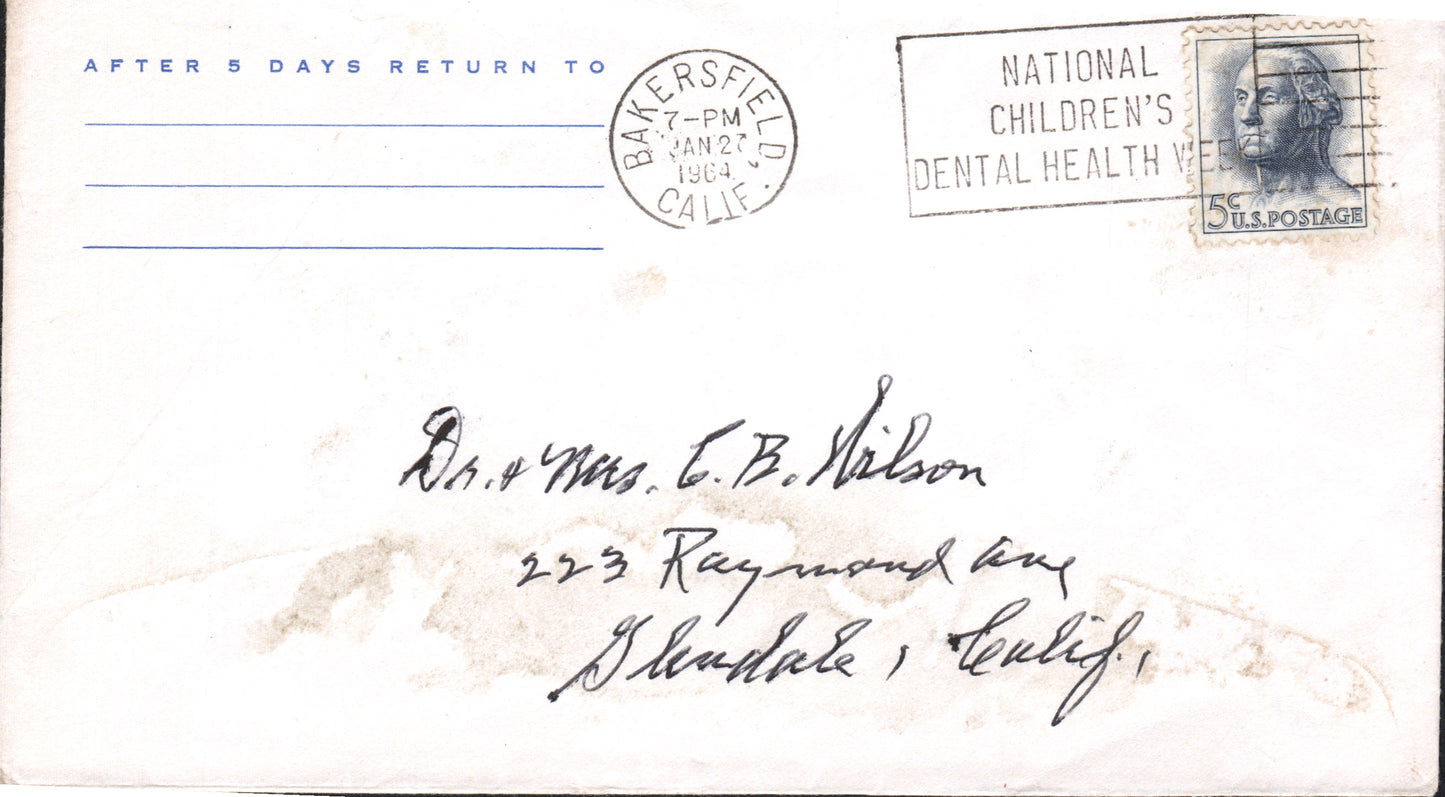 AFTER 5 DAYS RETURN TO
BAKERSFIELD, CALIF.
7-PM
JAN 27
1964
NATIONAL
CHILDREN'S
DENTAL HEALTH WEEK
5c U.S. POSTAGE
Dr. & Mrs. C. B. Wilson
223 Raymond Ave
Glendale, Calif.,